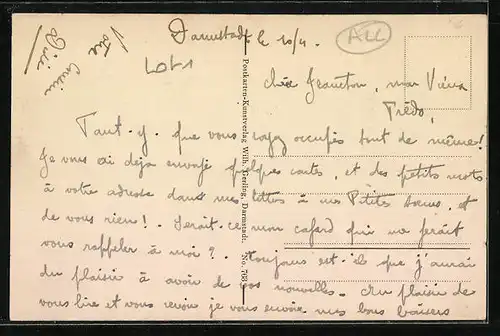 Darmstadt le 10/4.
ALL
Votre
Cousin
LOT1
Chère Jeaneton, mon Vieux
Frédo,
Faut-y- que vous soyez occupés tout de même!
Je vous ai déjà envoyé quelques cartes, et des petits mots
à votre adresse dans mes lettres à mes Petites Soeurs, et
de vous rien! - Serait-ce mon cafard qui me ferait
vous rappeler à moi? - toujours est-il que j'aurai
du plaisir à avoir de vos nouvelles. - Au plaisir de
vous lire et vous revoir je vous envoie mes bons baisers
Postkarten-Kunstverlag Wilh. Gerling, Darmstadt. No. 703